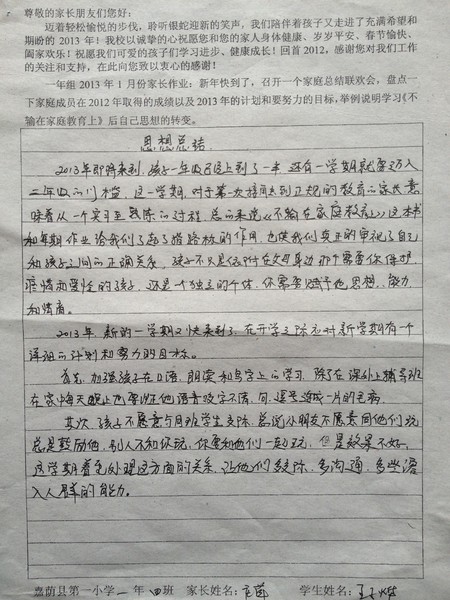 尊敬的家长朋友们您好：
迈着轻松愉悦的步伐，聆听银蛇迎新的笑声，我们陪伴着孩子又走进了充满希望和
期盼的 2013 年！我校以诚挚的心祝愿您和您的家人身体健康、岁岁平安、春节愉快、
阖家欢乐！祝愿我们可爱的孩子们学习进步、健康成长！回首 2012，感谢您对我们工作
的关注和支持，在此向您致以衷心的感谢！
一年组 2013 年 1 月份家长作业：新年快到了，召开一个家庭总结联欢会，盘点一
下家庭成员在 2012 年取得的成绩以及 2013 年的计划和要努力的目标，举例说明学习《不
输在家庭教育上》后自己思想的转变。
思想总结
2013年即将来到，孩子一年级已经上到了一半，还有一学期就要迈入
二年级的门槛，这一学期，对于第一次接触到正规的教育的家长意
味着从一个实习至熟练的过程，总的来说《不输在家庭教育上》这本书
和每期作业给我们了起了指路标的作用，也使我们真正的审视了自己
和孩子之间的正确关系，孩子不只是依附在父母身边那个需要你保护
亲情和爱护的孩子，还是一个独立的个体，你需要赋予他思想、能力
和情商。
2013年，新的一学期又快来到了，在开学之际应对新学期有一个
详细的计划和努力的目标。
首先，加强孩子在口语，朗读和写字上的学习，除了在课外上辅导班
在家每天晚上也要纠正他语音咬字不清，句，逗号连成一片的毛病，
其次，孩子不愿意与同班学生交际，总说小朋友不愿意同他们玩
总是鼓励他，别人不和你玩，你要和他们一起玩，但是效果不好，
这学期着重处理这方面的关系，让他们交际，多沟通，多些溶
入人群的能力。
嘉荫县第一小学 一 年 四 班 家长姓名： 学生姓名：王